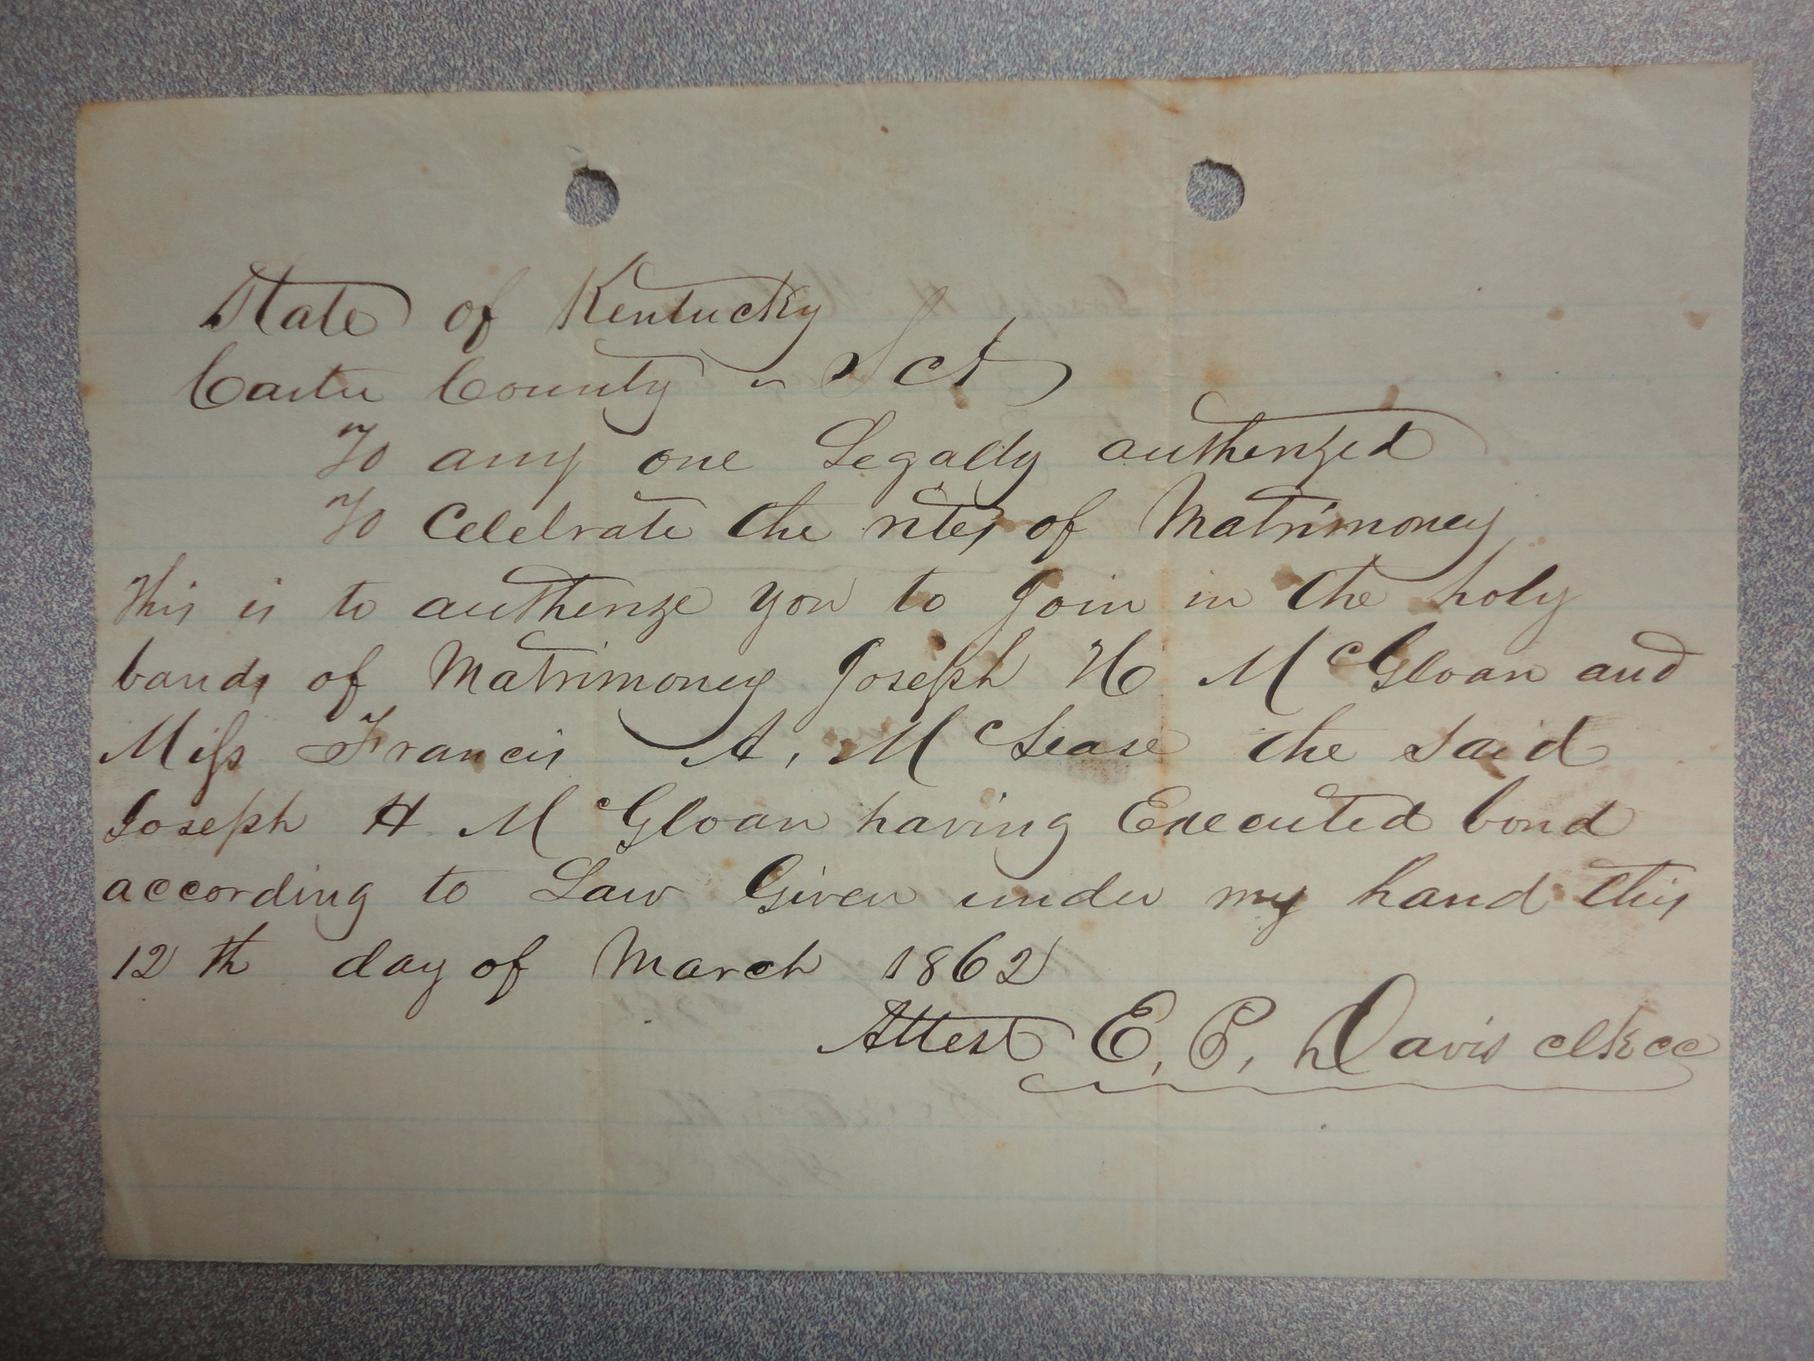 State of Kentucky
Carter County Sct
To any one Legally autherized
To Celebrate the rites of Matrimoney
This is to autherize you to Join in the holy
bands of Matrimoney Joseph H McGloan and
Miss Francis A. McLease the said
Joseph H McGloan having Executed bond
according to Law Given under my hand this
12th day of March 1862
Attest E. P. Davis clk cc